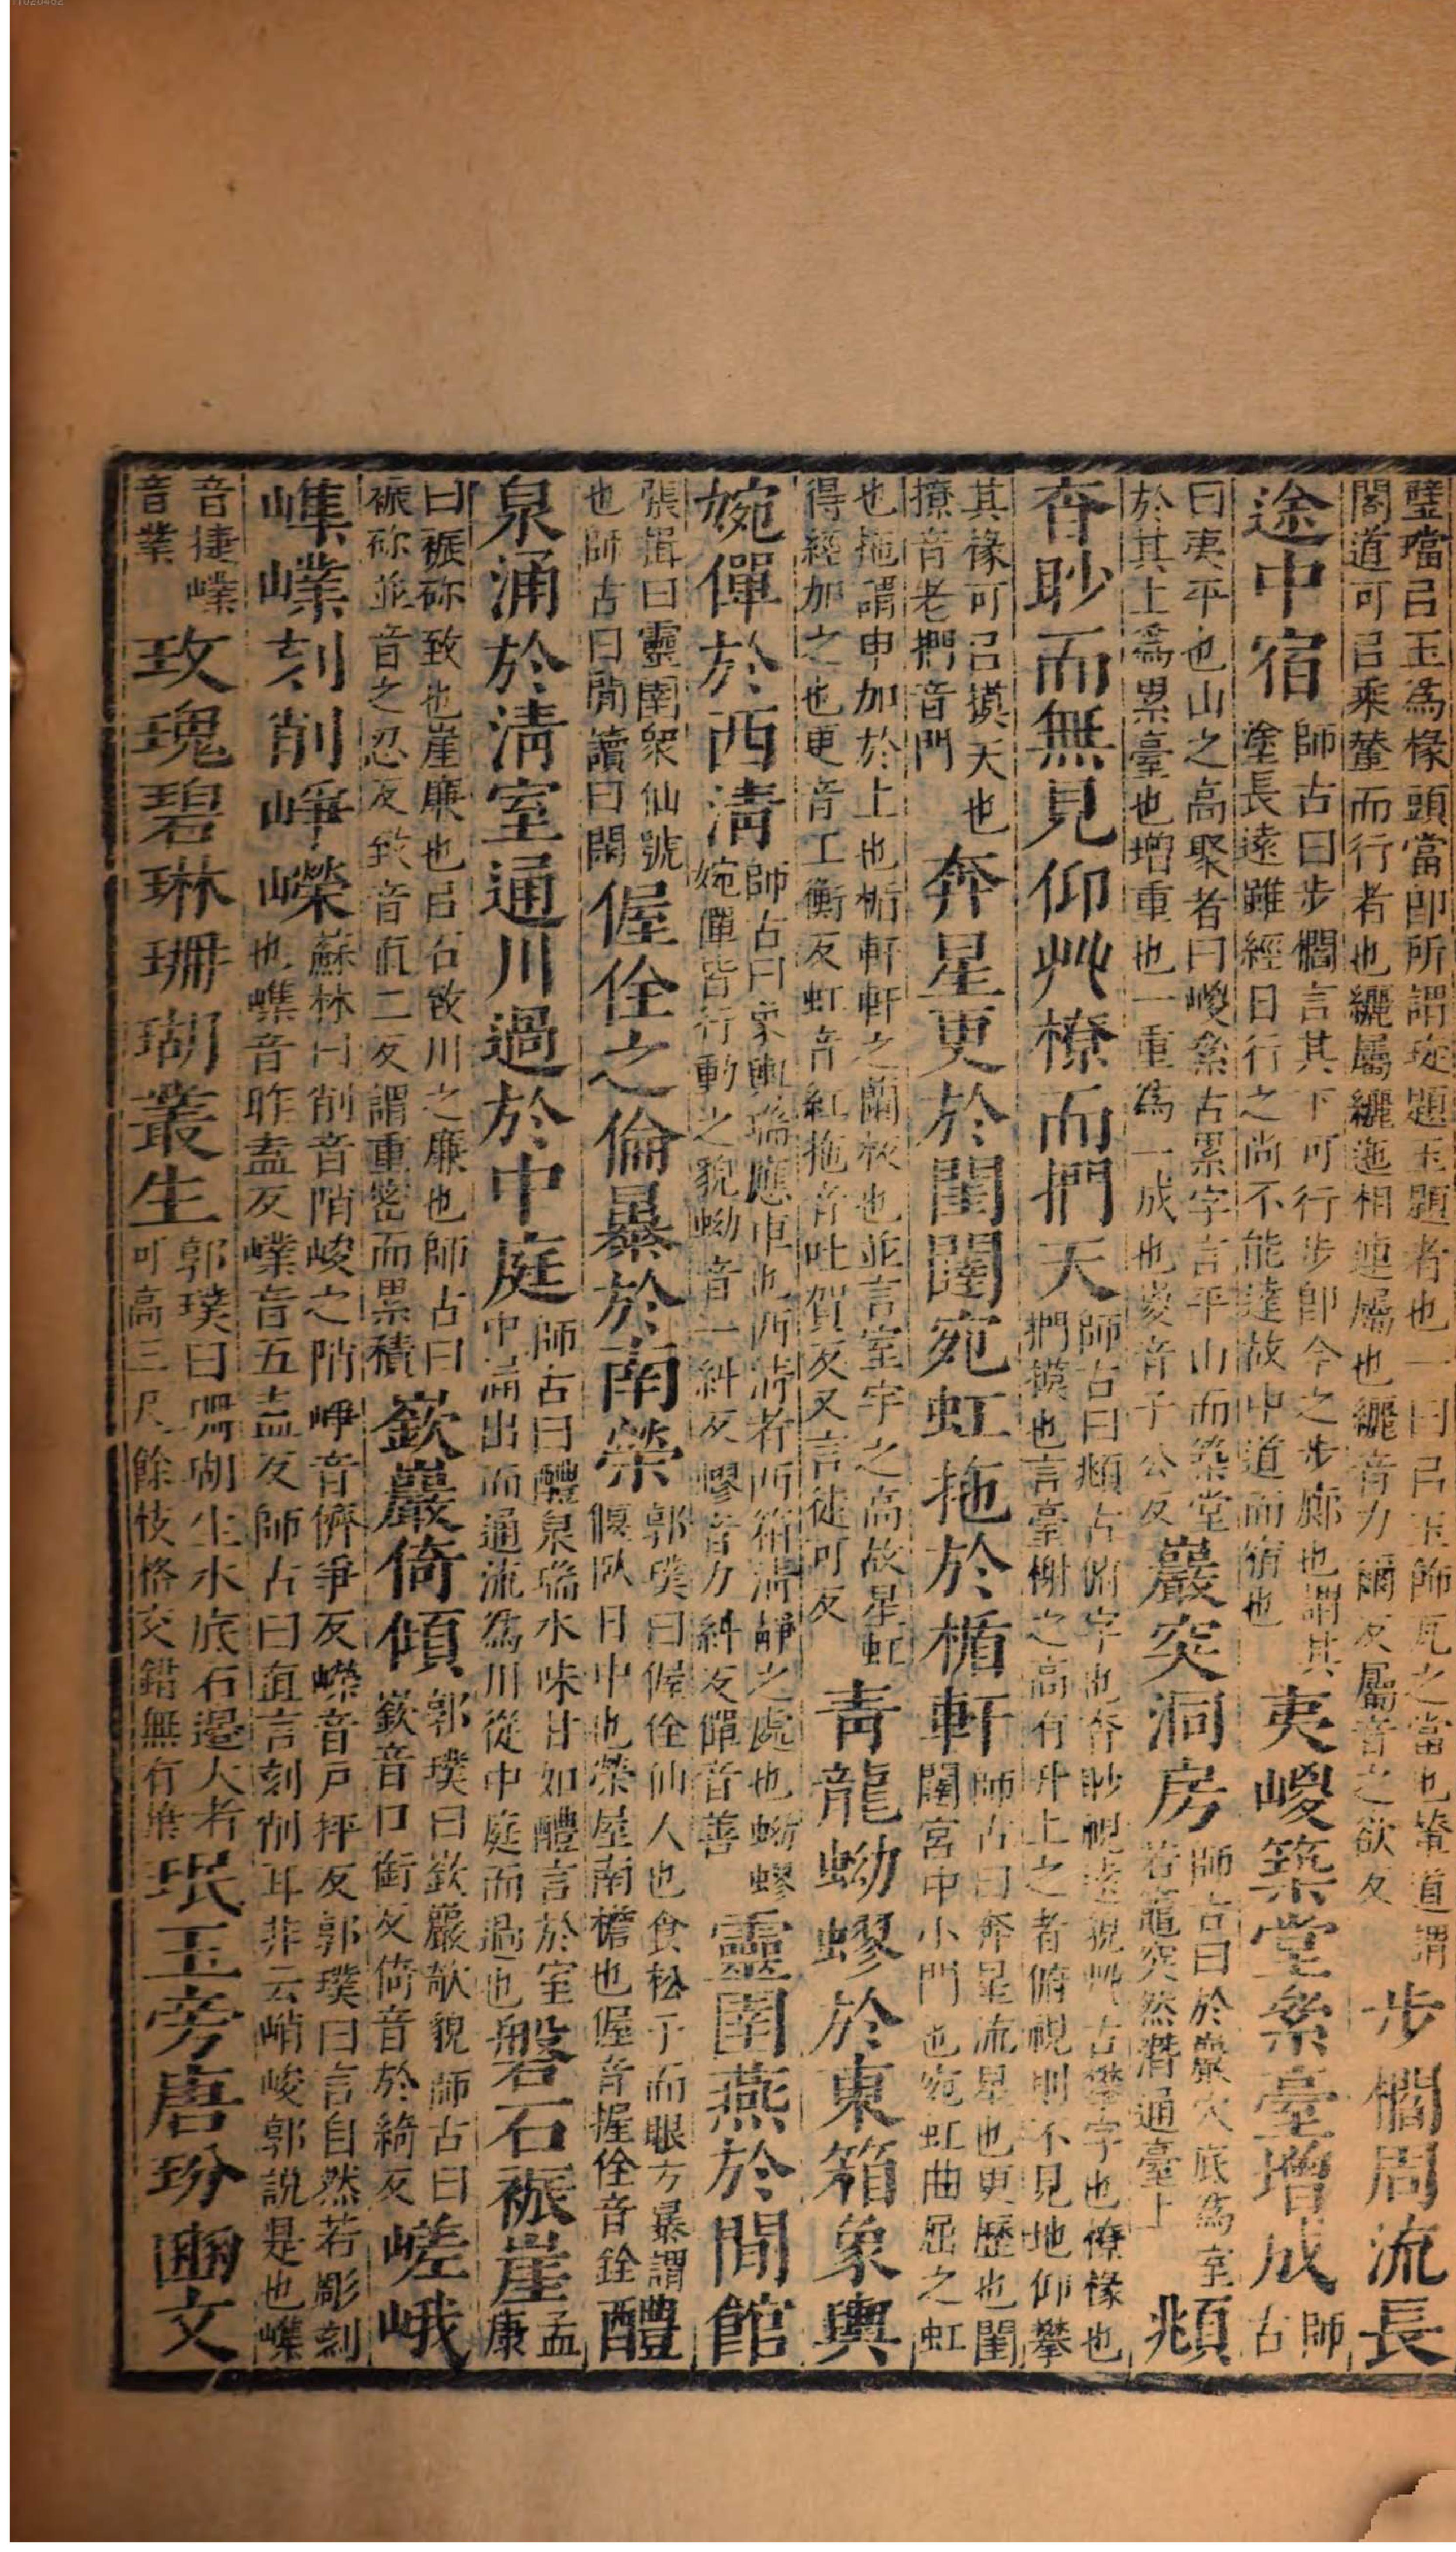 璧璫㠯玉為椽頭當卽所謂琁題玉題者也一曰㠯玉飾瓦之當也輦道謂
閣道可㠯乘輦而行者也纚屬纚迤相連屬也纚音力爾反屬音之欲反
步櫩周流長
途中宿
師古曰步櫩言其下可行步卽今之步廊也謂其
塗長遠雖經日行之尚不能達故中道而宿也
夷嵕築堂絫臺增成
師
古
曰夷平也山之高聚者曰嵕絫古累字言平山而築堂
於其上為累臺也增重也一重為一成也嵕音子公反
巖突洞房
師古曰於巖穴底為室
若竈突然潛通臺上
頫
杳眇而無見仰𠬜橑而捫天
師古曰頫古俯字也杳眇視遠貌𠬜古攀字也橑椽也
捫摸也言臺榭之高有升上之者俯視則不見地仰攀
其椽可㠯摸天也
橑音老捫音門
奔星更於閨闥宛虹拖於楯軒
師古曰奔星流星也更歷也閨
闥宮中小門也宛虹曲屈之虹
也拖謂申加於上也楯軒軒之闌板也並言室宇之高故星虹
得經加之也更音工衡反虹音紅拖音吐賀反又言徒可反
青龍蚴蟉於東箱象輿
婉僤於西淸
師古曰象輿瑞應車也西淸者西箱淸靜之處也蚴蟉
婉僤皆行動之貌蚴音一糾反蟉音力糾反僤音善
靈圉燕於閒館
張揖曰靈圉衆仙號
也師古曰閒讀曰閑
偓佺之倫暴於南榮
郭璞曰偓佺仙人也食松子而眼方暴謂
偃臥日中也榮屋南檐也偓音握佺音銓
醴
泉涌於淸室通川過於中庭
師古曰醴泉瑞水味甘如醴言於室
中涌出而通流為川從中庭而過也
磐石裖崖
孟
康
曰裖裖致也崖廉也㠯石致川之廉也師古曰
裖裖並音之忍反致音直二反謂重密而累積
嶔巖倚傾
郭璞曰嶔巖欹貌師古曰
嶔音口銜反倚音於綺反
嵯峨
嶕嶫刻削崢嶸
蘇林曰削音陗峻之陗崢音儕爭反嶸音戸抨反郭璞曰言自然若彫刻
也嶕音昨盍反嶫音五盍反師古曰直言刻削耳非云峭峻郭說是也嶕
音捷嶫
音業
玫瑰碧琳珊瑚叢生
郭璞曰珊瑚生水底石邊大者
可高三尺餘枝格交錯無有葉
珉玉旁唐玢豳文